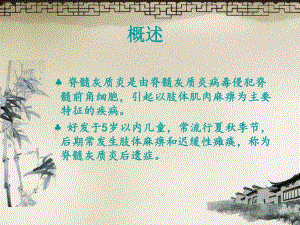 概述
♣ 脊髓灰质炎是由脊髓灰质炎病毒侵犯脊
髓前角细胞，引起以肢体肌肉麻痹为主要
特征的疾病。
♣ 好发于5岁以内儿童，常流行夏秋季节，
后期常发生肢体麻痹和迟缓性瘫痪，称为
脊髓灰质炎后遗症。